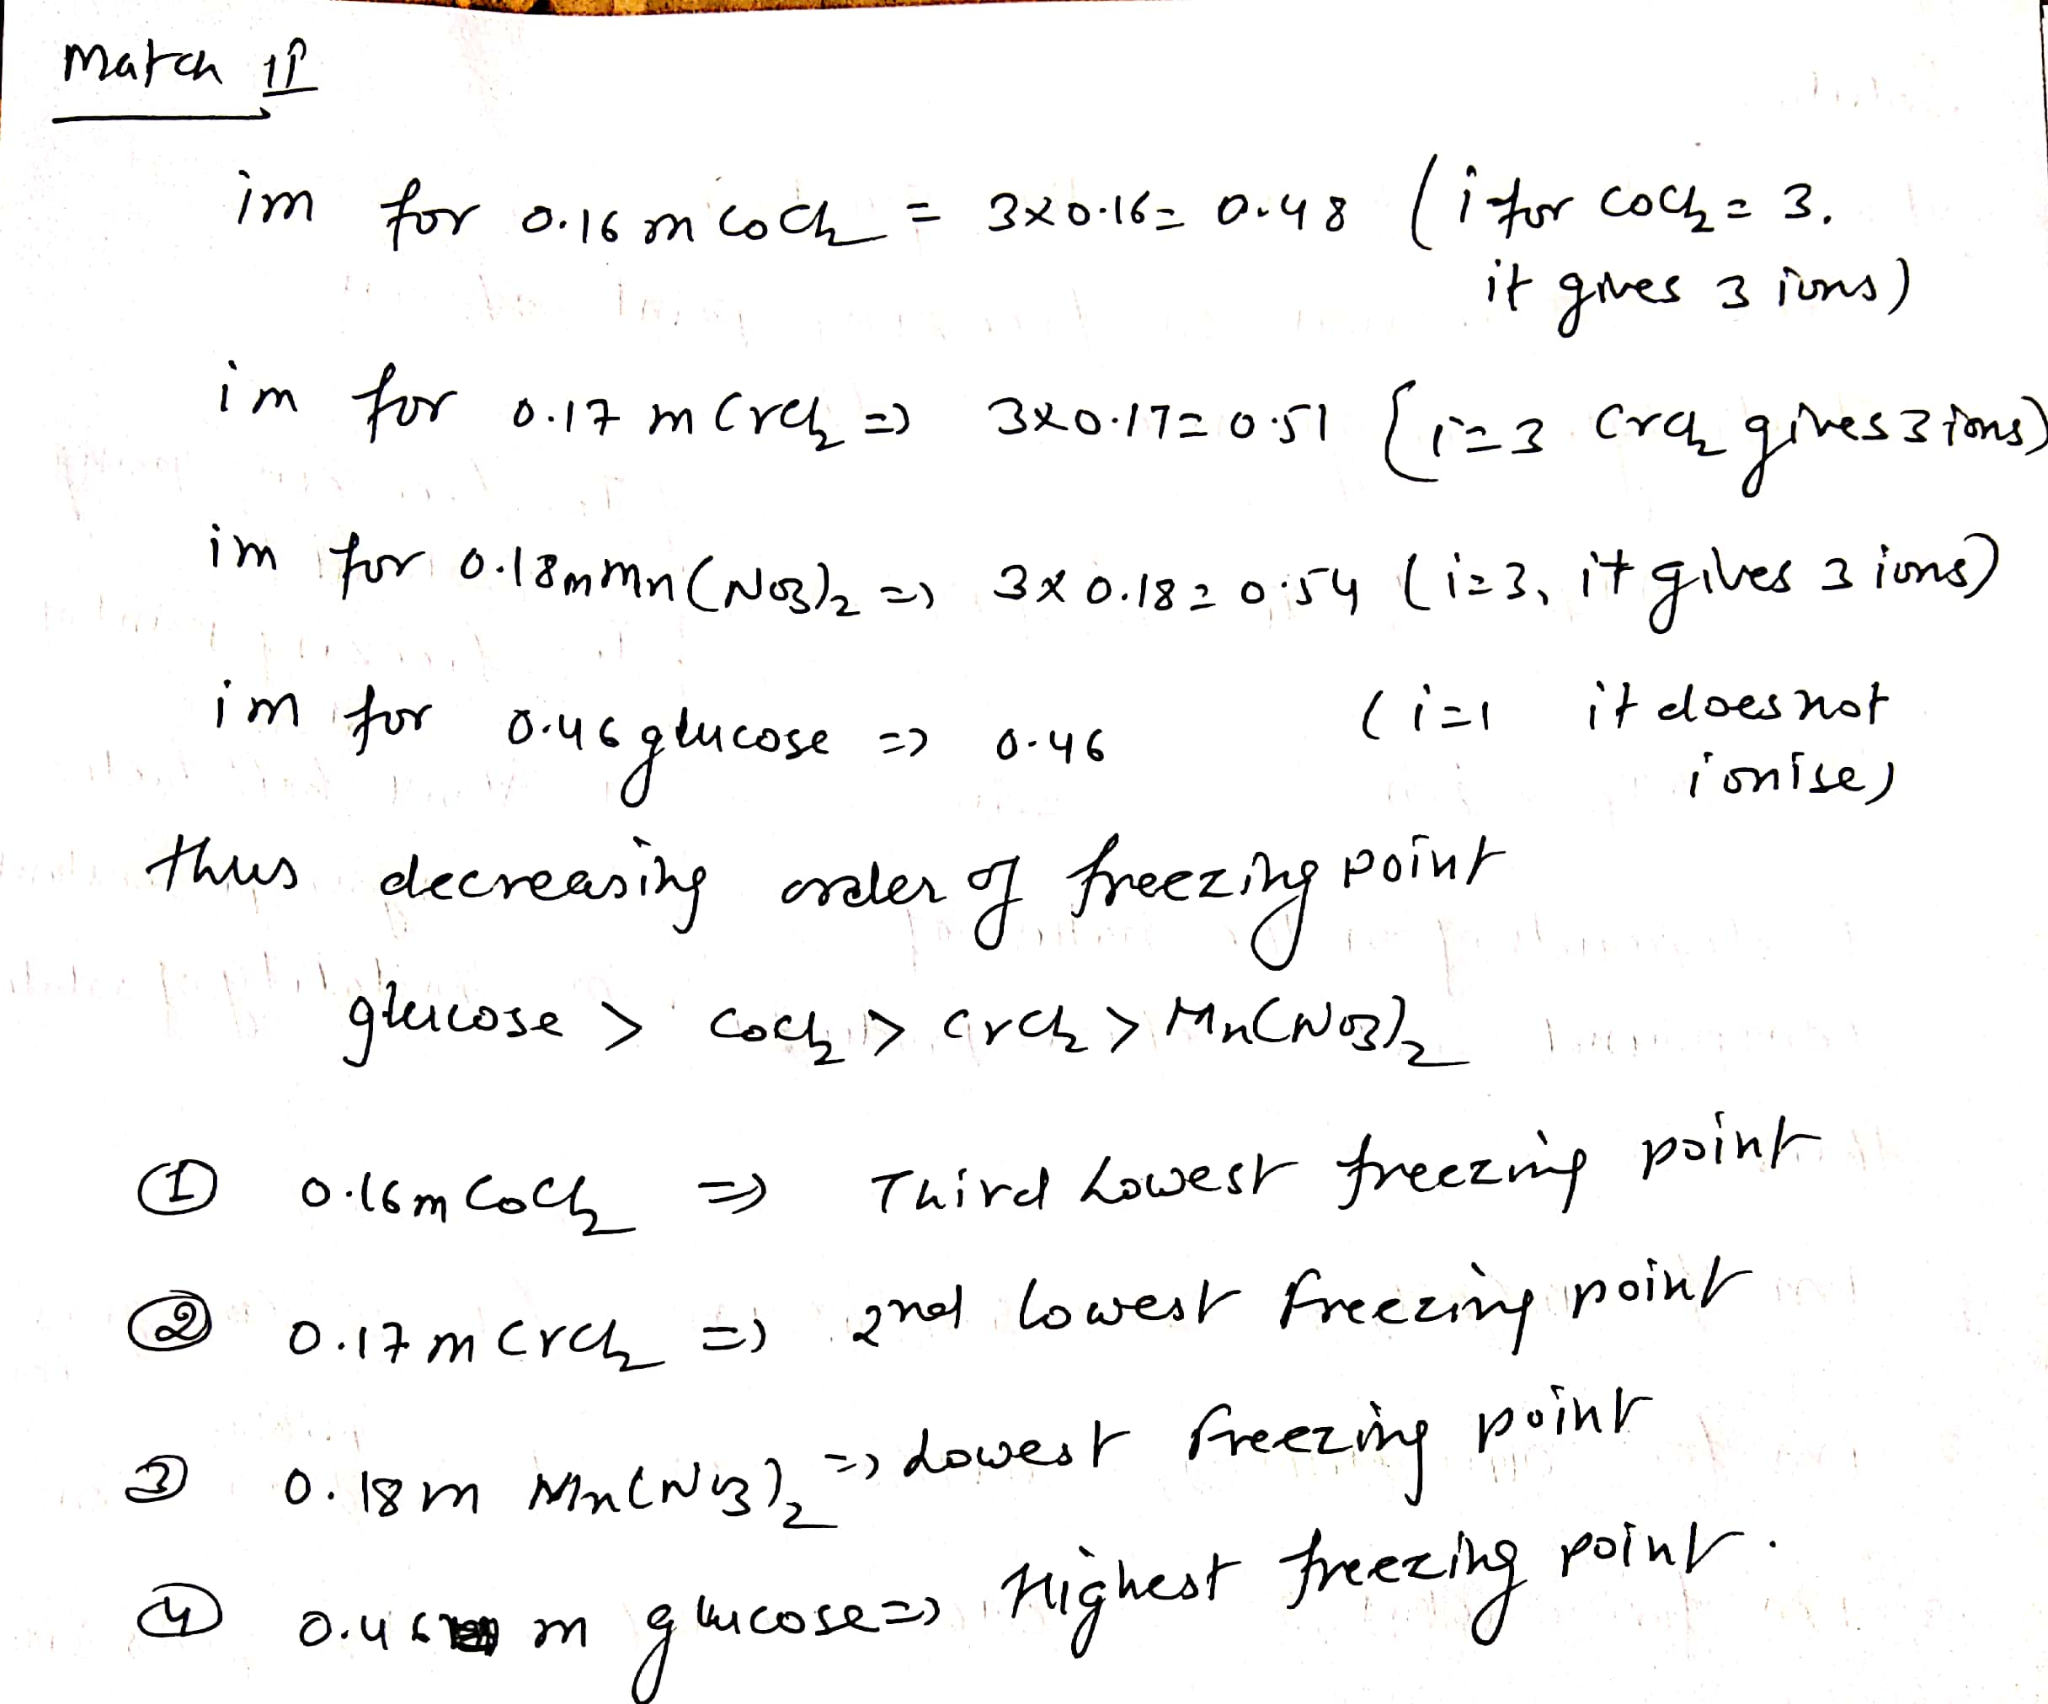 Match up
im for 0.16 m CoCl2 = 3x0.16 = 0.48 (i for CoCl2 = 3.
it gives 3 ions)
im for 0.17 m CrCl2 => 3x0.17 = 0.51 (i=3 CrCl2 gives 3 ions)
im for 0.18m Mn(NO3)2 => 3x0.18 = 0.54 (i=3, it gives 3 ions)
im for 0.46 glucose => 0.46 (i=1 it does not
ionise)
thus decreasing order of freezing point
glucose > CoCl2 > CrCl2 > Mn(NO3)2
① 0.16m CoCl2 => Third Lowest freezing point
② 0.17 m CrCl2 => 2nd lowest freezing point
③ 0.18 m Mn(NO3)2 => Lowest freezing point
④ 0.46 m glucose => Highest freezing point.